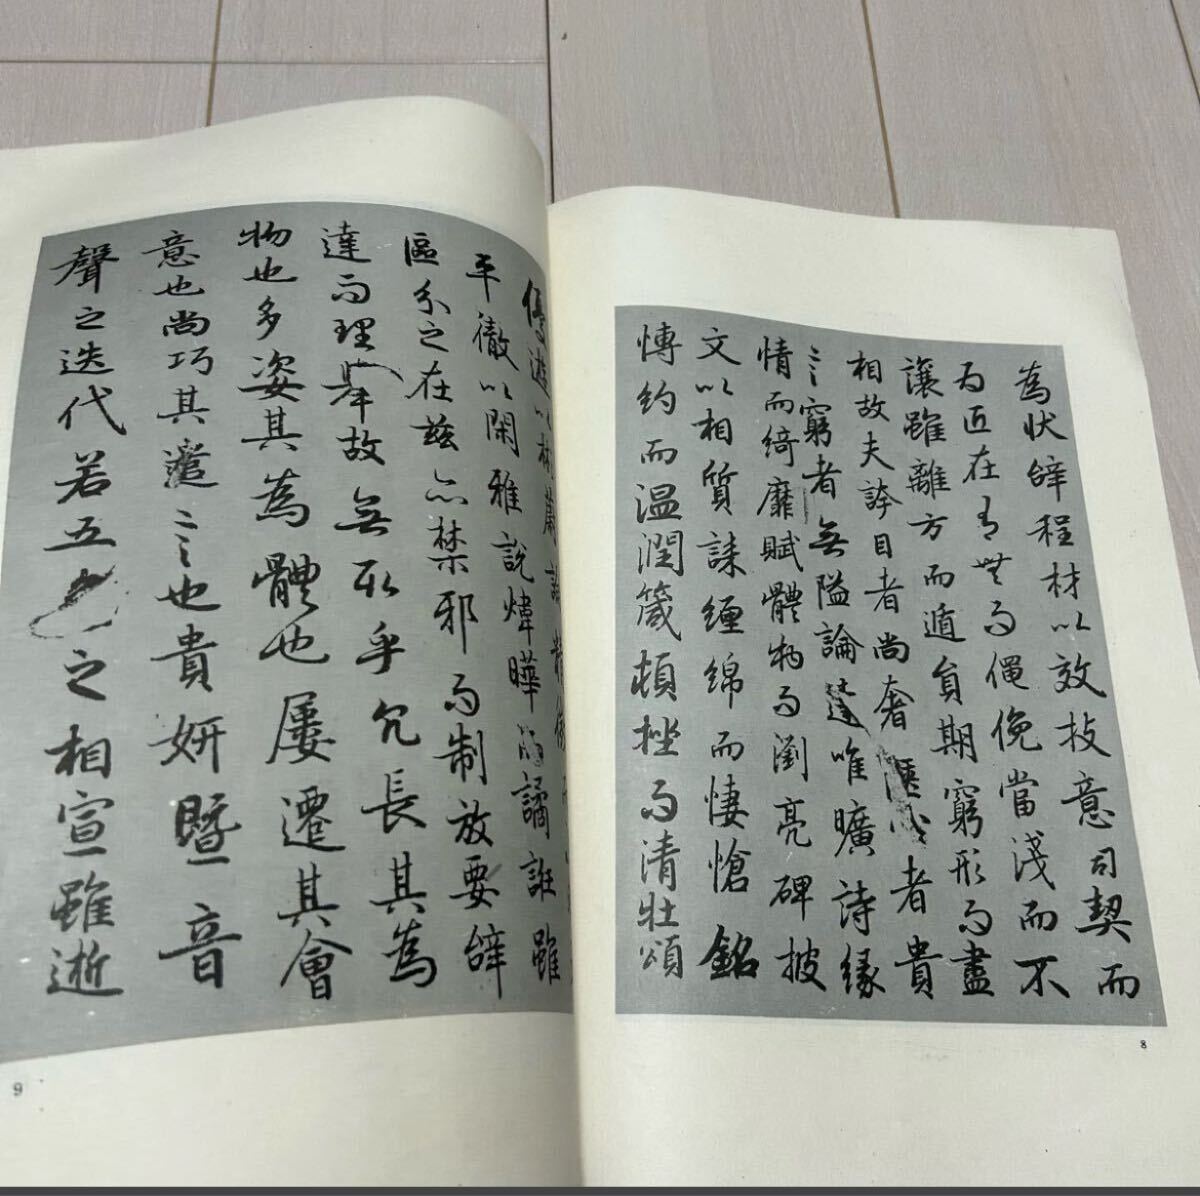 為狀辝程材以效技意司契而
為匠在有無而僶俛當淺而不
讓雖離方而遁員期窮形而盡
相故夫誇目者尚奢愜心者貴
言窮者無隘論達唯曠詩緣
情而綺靡賦體物而瀏亮碑披
文以相質誄纏綿而悽愴銘
博約而温潤箴頓挫而清壯頌
8
優遊以彬蔚論精微
平徹以閑雅說煒曄而譎誑雖
區分之在茲亦禁邪而制放要辝
達而理舉故無取乎冗長其為
物也多姿其為體也屢遷其會
意也尚巧其遣言也貴妍暨音
聲之迭代若五色之相宣雖逝
9